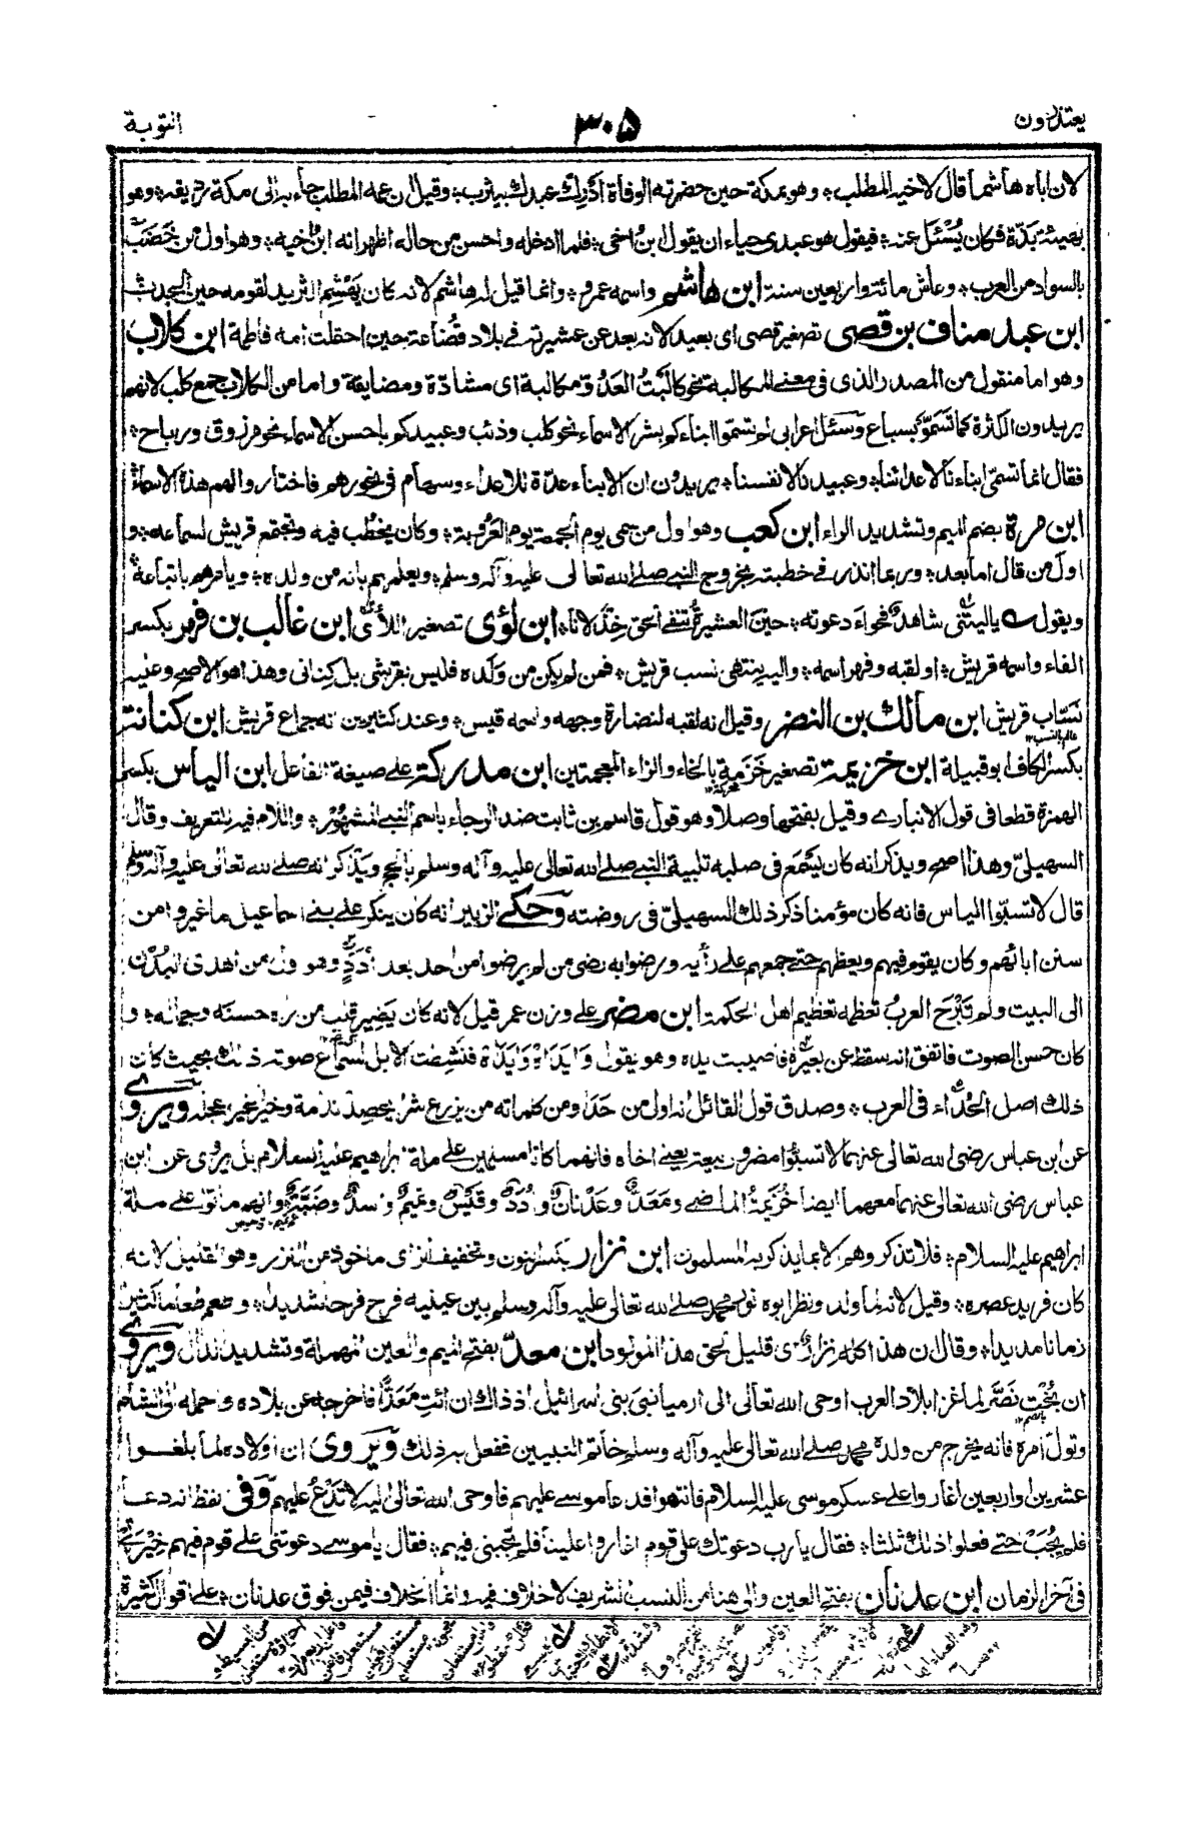 يعتذرون
٣٠٥
التوبة
لان اباه هاشما قال لاخيه المطلب وهو بمكة حين حضرته الوفاة أدرك عبدك بيثرب وقيل ان عمه المطلب جاء به الى مكة رديفه وهو
بهيئة بذة فكان يُسْئَل عنه فيقول هو عبدى حياء ان يقول ابن اخى فلما ادخله واحسن من حاله اظهر انه ابن اخيه وهو اول من خَضَبَ
بالسواد من العرب وعاش مائة واربعين سنة ابن هاشم واسمه عمرو وانما قيل له هاشم لانه كان يَهْشِم الثريد لقومه حين الجدب
ابن عبد مناف بن قصى تصغير قصى اى بعيد لانه بعد عن عشيرته فى بلاد قُضاعة حين احتملت امه فاطمة ابن كلاب
وهو اما منقول من المصدر الذى فى معنى المكالبة نحو كالَبْتُ العَدُوَّ مكالبة اى مشادّة ومضايقة واما من الكلاب جمع كلب لانهم
يريدون الكثرة كما تَسَمَّوْ بسباع وسئل اعرابى لم تسموا ابناءكم بشر الاسماء نحو كلب وذئب وعبيدكم باحسن الاسماء نحو مرزوق ورباح
فقال انما نسمّى ابناءنا لاعدائنا وعبيدنا لانفسنا يريدون ان الابناء عدّة للاعداء وسهام فى نحورهم فاختاروا لهم هذه الاسماء
ابن مرة بضم الميم وتشديد الراء ابن كعب وهو اول من سمى يوم الجمعة يوم العَرُوبة وكان يخطب فيه وتجتمع قريش لسماعه و
اول من قال اما بعد وربما انذر فى خطبته بخروج النبى صلى الله تعالى عليه وآله وسلم ويعلمهم بانه من ولده ويامرهم باتباعه
ويقول ياليتنى شاهد فحواء دعوته حين العشيرة تنفى الحق خذلانا ابن لؤى تصغير اللأى ابن غالب بن فهر بكسر
الفاء واسمه قريش او لقبه وفهر اسمه واليه ينتهى نسب قريش فمن لم يكن من ولده فليس بقرشى بل كنانى وهذا هو الاصح وعليه
نسّاب قريش ابن مالك بن النضر وقيل انه لقبه لنضارة وجهه واسمه قيس وعند كثيرين انه جماع قريش ابن كنانة
عالم بالنسب
بكسر الكاف ابو قبيلة ابن خزيمة تصغير خَزَمة بالخاء والزاء المعجمتين ابن مدركة على صيغة الفاعل ابن الياس بكسر
الهمزة قطعا فى قول الانبارى وقيل بفتحها وصلا وهو قول قاسم بن ثابت ضد الرجاء باسم النبى المشهور واللام فيه للتعريف وقال
السهيلىّ وهذا اصح ويذكر انه كان يَسْمَع فى صلبه تلبية النبى صلى الله تعالى عليه وآله وسلم بالحج ويذكر انه صلى الله تعالى عليه وآله وسلم
قال لا تسبّوا الياس فانه كان مؤمنا ذكر ذلك السهيلىّ فى روضته وحكى الزبير انه كان ينكر على بنى اسماعيل ما غيروا من
سنن ابائهم وكان يقوم فيهم ويعظهم حتى جمعهم على رأيه ورضوا به رضى من لم يرضوا من احد بعد أُدَدٍ وهو اول من اهدى البُدْن
الى البيت ولم تَبْرَح العربُ تعظمه تعظيم اهل الحكمة ابن مضر على وزن عمر قيل لانه كان يَضِير قلب من راه حسنه وجماله و
كان حسن الصوت فاتفق انه سقط عن بعيره فاصيبت يده وهو يقول وَايَدَاهْ وَايَدَاهْ فنشطت الابل لسماع صوته ذلك بحيث كان
ذلك اصل الحُدَاء فى العرب وصدق قول القائل انه اول من حَدَا ومن كلماته من يزرع شرا يحصد ندامة وخير الخير اعجله ويروى
عن ابن عباس رضى الله تعالى عنهما لا تسبّوا مضر وربيعة يعنى اخاه فانهما كانا مسلمين على ملة ابراهيم عليه السلام بل يروى عن ابن
عباس رضى الله تعالى عنهما معهما ايضا خُزَيمةُ الماضى ومَعَدٌّ وعَدْنانُ وأُدَدُ وقَيْسٌ وتميمٌ واسدٌ وضَبَّةُ وانهم ماتوا على ملة
ابراهيم عليه السلام فلا تذكروهم الا بما يذكر به المسلمون ابن نزار بكسر النون وتخفيف الزاى ماخوذ من النزر وهو القليل لانه
كان فريد عصره وقيل لانه لما ولد ونظر ابوه نور محمد صلى الله تعالى عليه وآله وسلم بين عينيه فرح فرحا شديدا واطعم طعاما كثيرا
زمانا مديدا وقال ان هذا كله نزارٌ اى قليل بحق هذا المولود ابن معدّ بفتح الميم والعين المهملة وتشديد الدال ويروى
ان بُخْت نَصَّر لما غزا بلاد العرب اوحى الله تعالى الى ارميا نبى بنى اسرائيل اذ ذاك ان ائتِ مَعَدًّا فاخرجه عن بلاده واحمله الى الشام
وتول امره فانه يخرج من ولده محمد صلى الله تعالى عليه وآله وسلم خاتم النبيين ففعل به ذلك ويروى ان اولاده لما بلغوا
عشرين او اربعين اغاروا على عسكر موسى عليه السلام فانتهوا فدعا موسى عليهم فاوحى الله تعالى اليه لا تَدْعُ عليهم وفى لفظ انه دعا
فلم يُجَبْ حتى فعلوا ذلك ثلثا فقال يا رب دعوتك على قوم اغاروا علينا فلم تجبنى فيهم فقال يا موسى دعوتنى على قوم فيهم خِيْرَتى
فى آخر الزمان ابن عدنان بفتح العين والى هنا من النسب الشريف لا خلاف فيه وانما الخلاف فيمن فوق عدنان على اقوال كثيرة